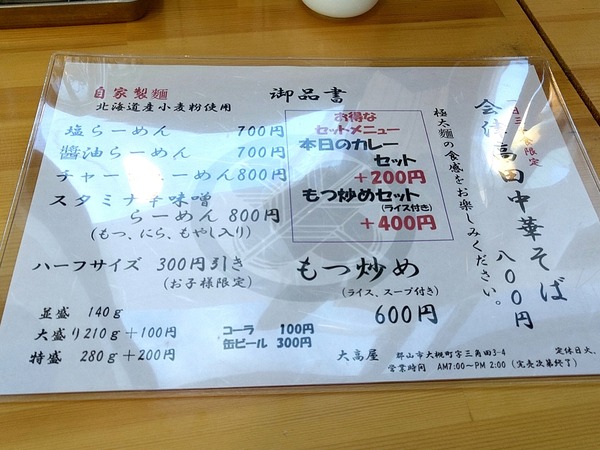 御品書
自家製麺
北海道産小麦粉使用
塩らーめん 700円
醬油らーめん 700円
チャーシューめん 800円
スタミナ辛味噌
らーめん 800円
(もつ、にら、もやし入り)
ハーフサイズ 300円引き
(お子様限定)
並盛 140g
大盛り210g+100円
特盛 280g+200円
コーラ 100円
缶ビール 300円
お得な
セットメニュー
本日のカレー
セット
+200円
もつ炒めセット
(ライス付き)
+400円
もつ炒め
(ライス、スープ付き)
600円
食限定
会津高田中華そば
八〇〇円
極太麵の食感をお楽しみください。
大高屋 郡山市大槻町字三角田3-4 定休日火、
営業時間 AM7:00~PM 2:00 (完売次第終了)